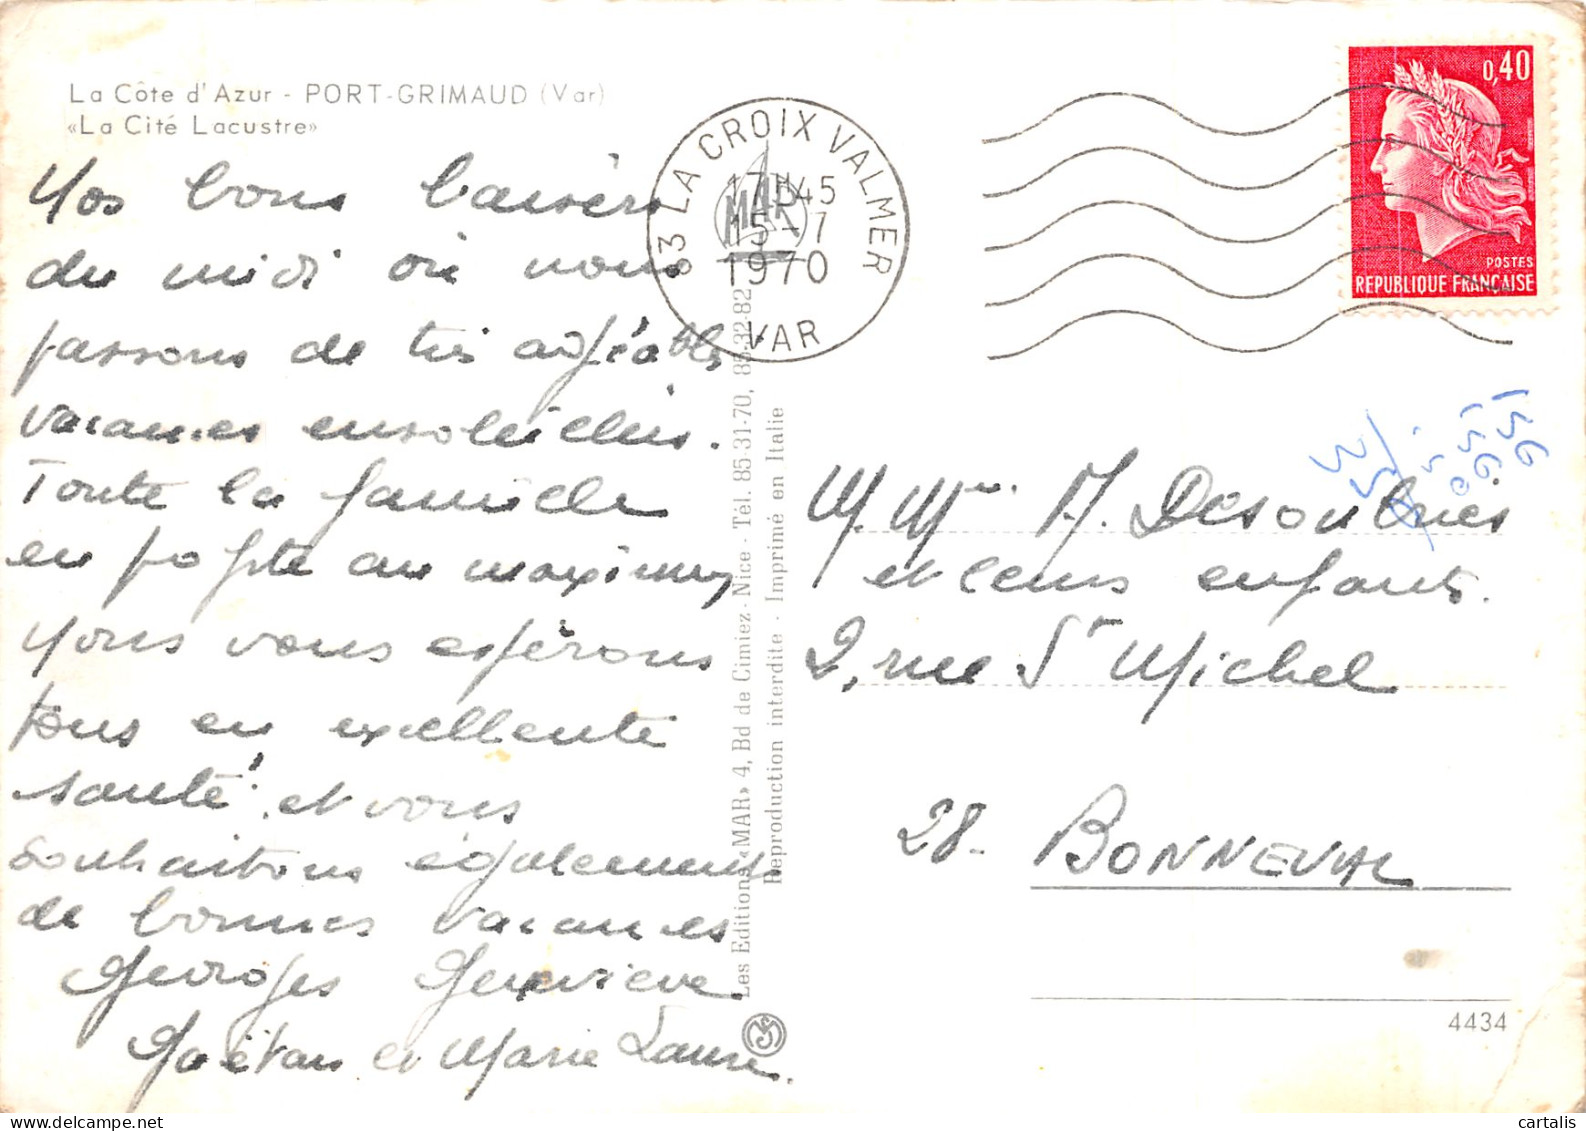 La Côte d'Azur - PORT-GRIMAUD (Var)
«La Cité Lacustre»
Nos bons baisers
du midi où nous
passons de très agréables
vacances ensoleillées.
Toute la famille
en profite au maximum
Nous vous espérons
tous en excellente
santé et vous
souhaitons également
de bonnes vacances
Georges Geneviève
Gaëtan et Marie Laure.
83 LA CROIX VALMER
17H45
15-7
1970
VAR
MAR
Les Editions «MAR» 4, Bd de Cimiez - Nice - Tél. 85-31-70, 85-32-82
Reproduction interdite - Imprimé en Italie
0,40
POSTES
REPUBLIQUE FRANÇAISE
156
156
M. Mme A. Desoubries
et leurs enfants.
2, rue St Michel
28- BONNEVAL
4434
cartalis